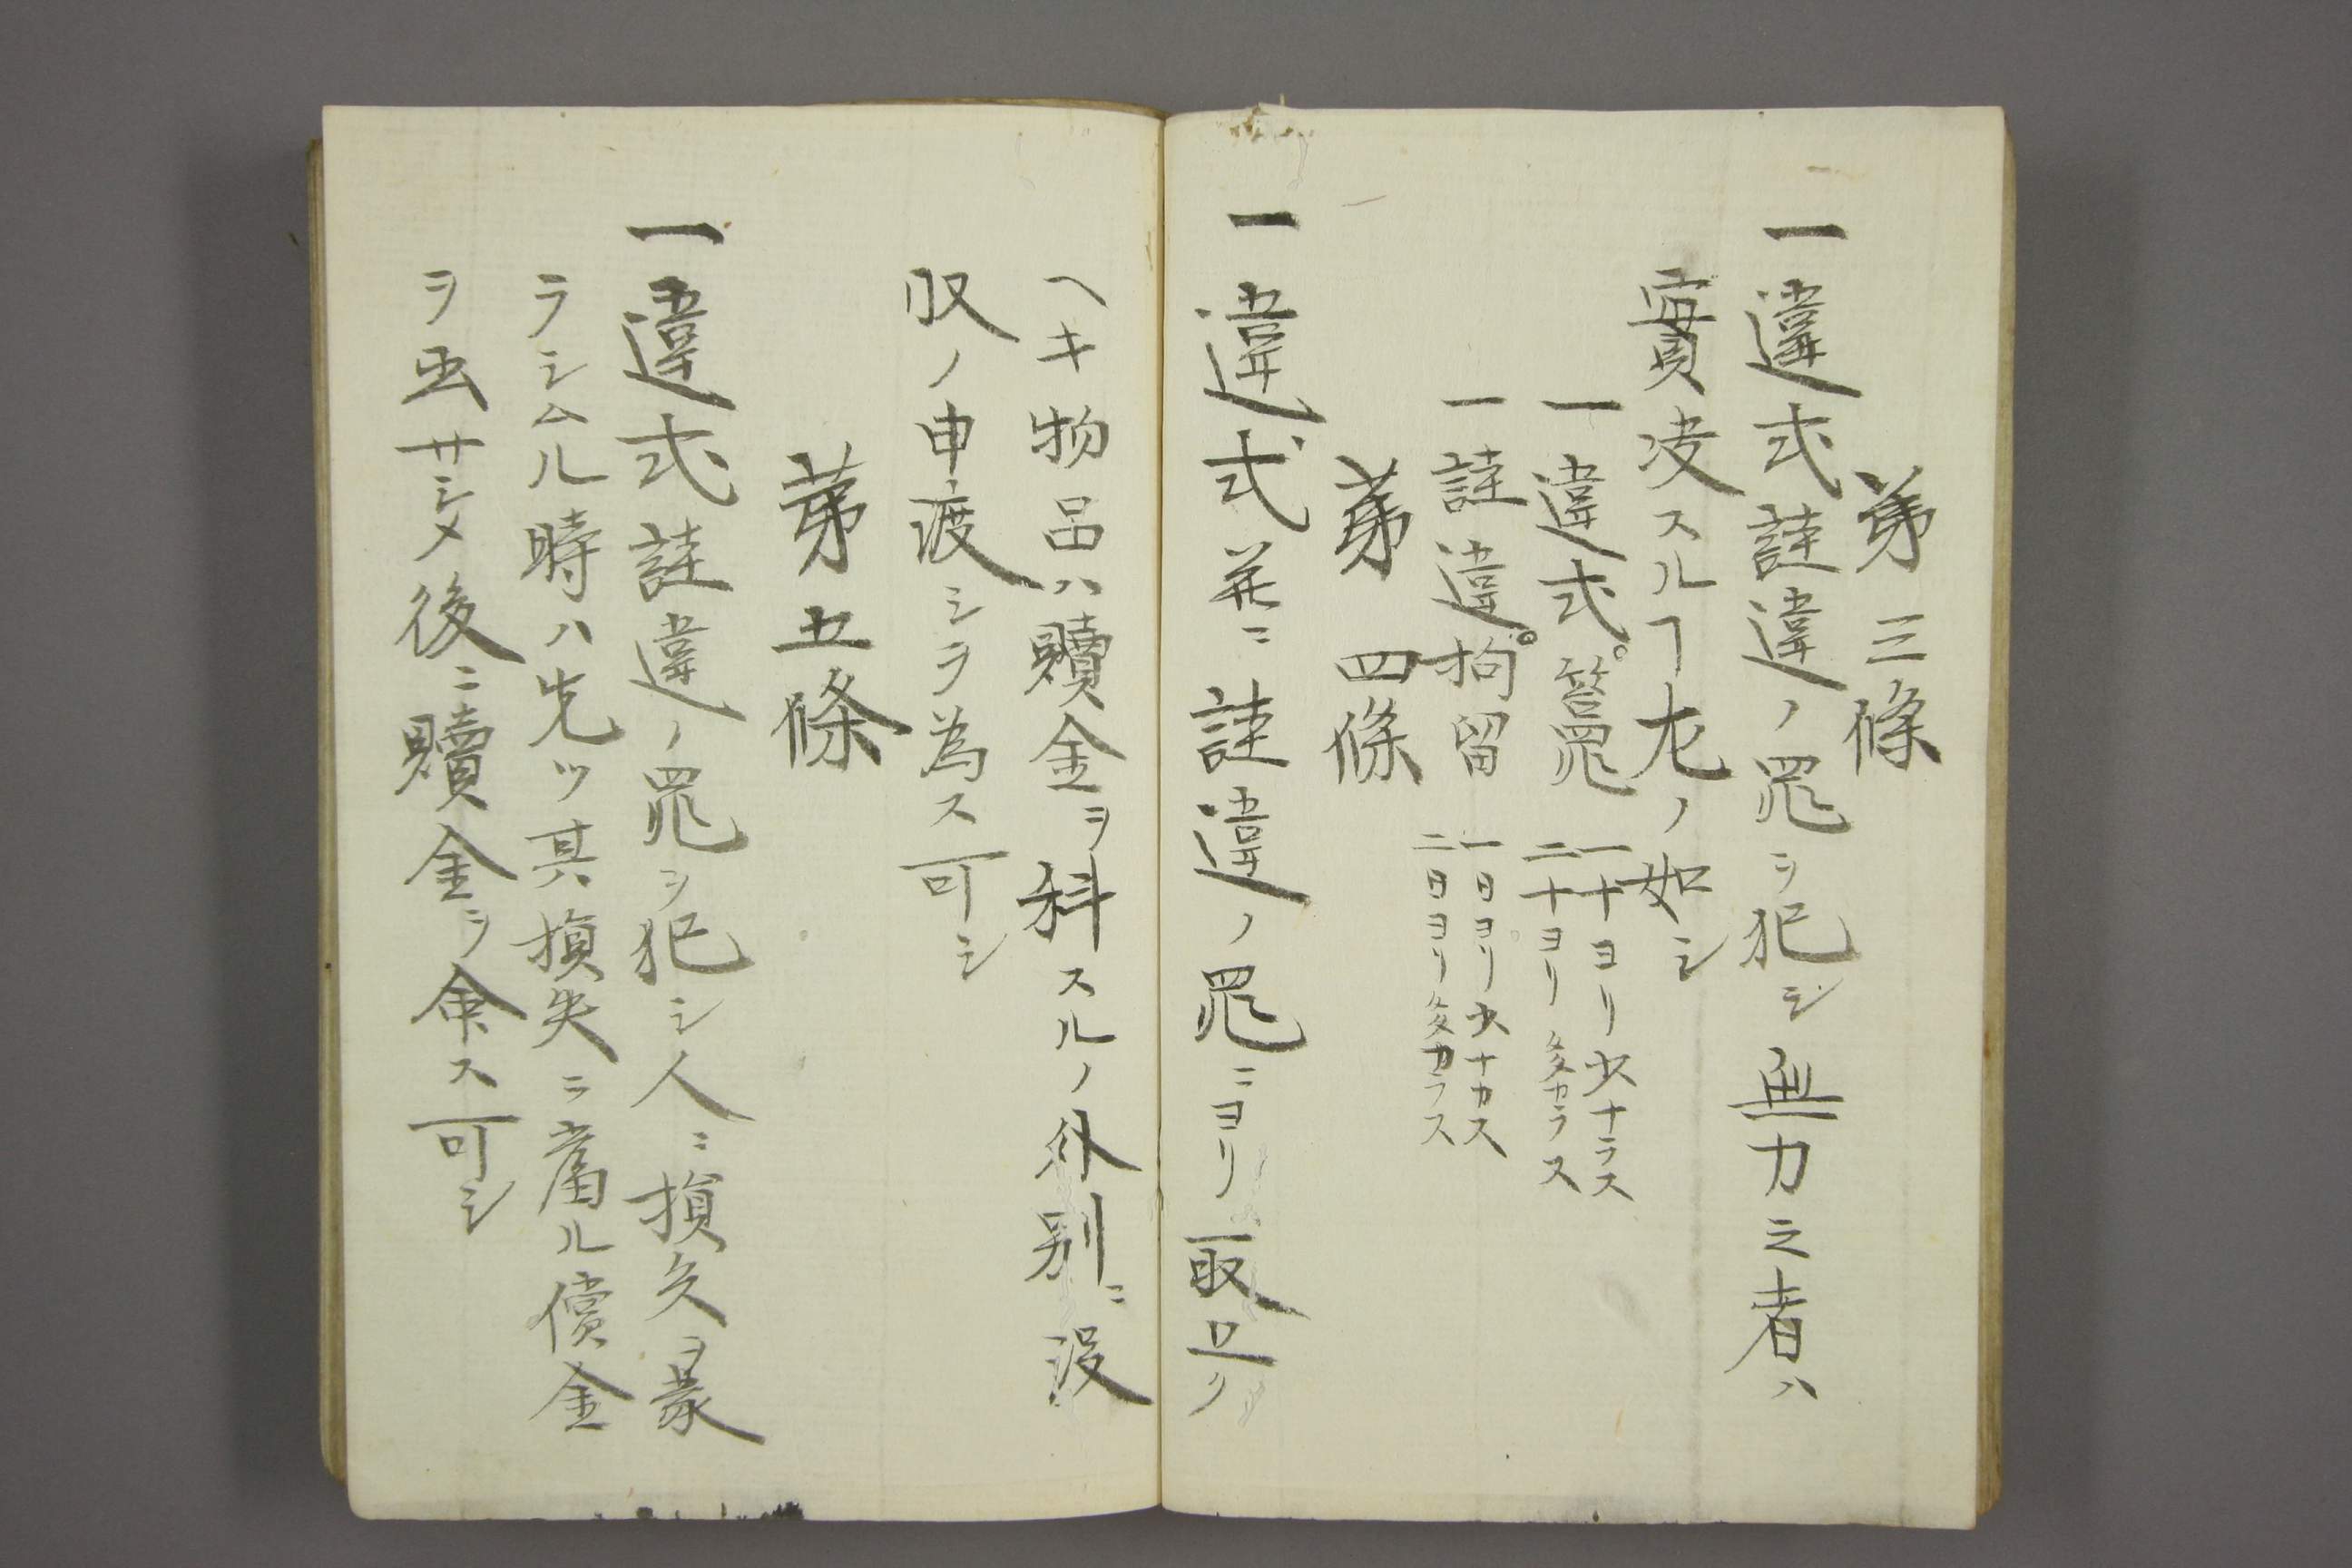 第三條
一違式詿違ノ罪ヲ犯シ無力ノ者ハ
實决スルヿ左ノ如シ
一違式。笞罪 一十ヨリ少ナラス
二十ヨリ多カラス
一詿違。拘留 一日ヨリ少ナカス
二日ヨリ多カラス
第四條
一違式并ニ詿違ノ罪ニヨリ取上ノ
ヘキ物品ハ贖金ヲ科スルノ外別ニ没
収ノ申渡シヲ為ス可シ
第五條
一違式詿違ノ罪ヲ犯シ人ニ損失ヲ蒙
ラシムル時ハ先ツ其損失ニ當ル償金
ヲ出サシメ後ニ贖金ヲ命ス可シ